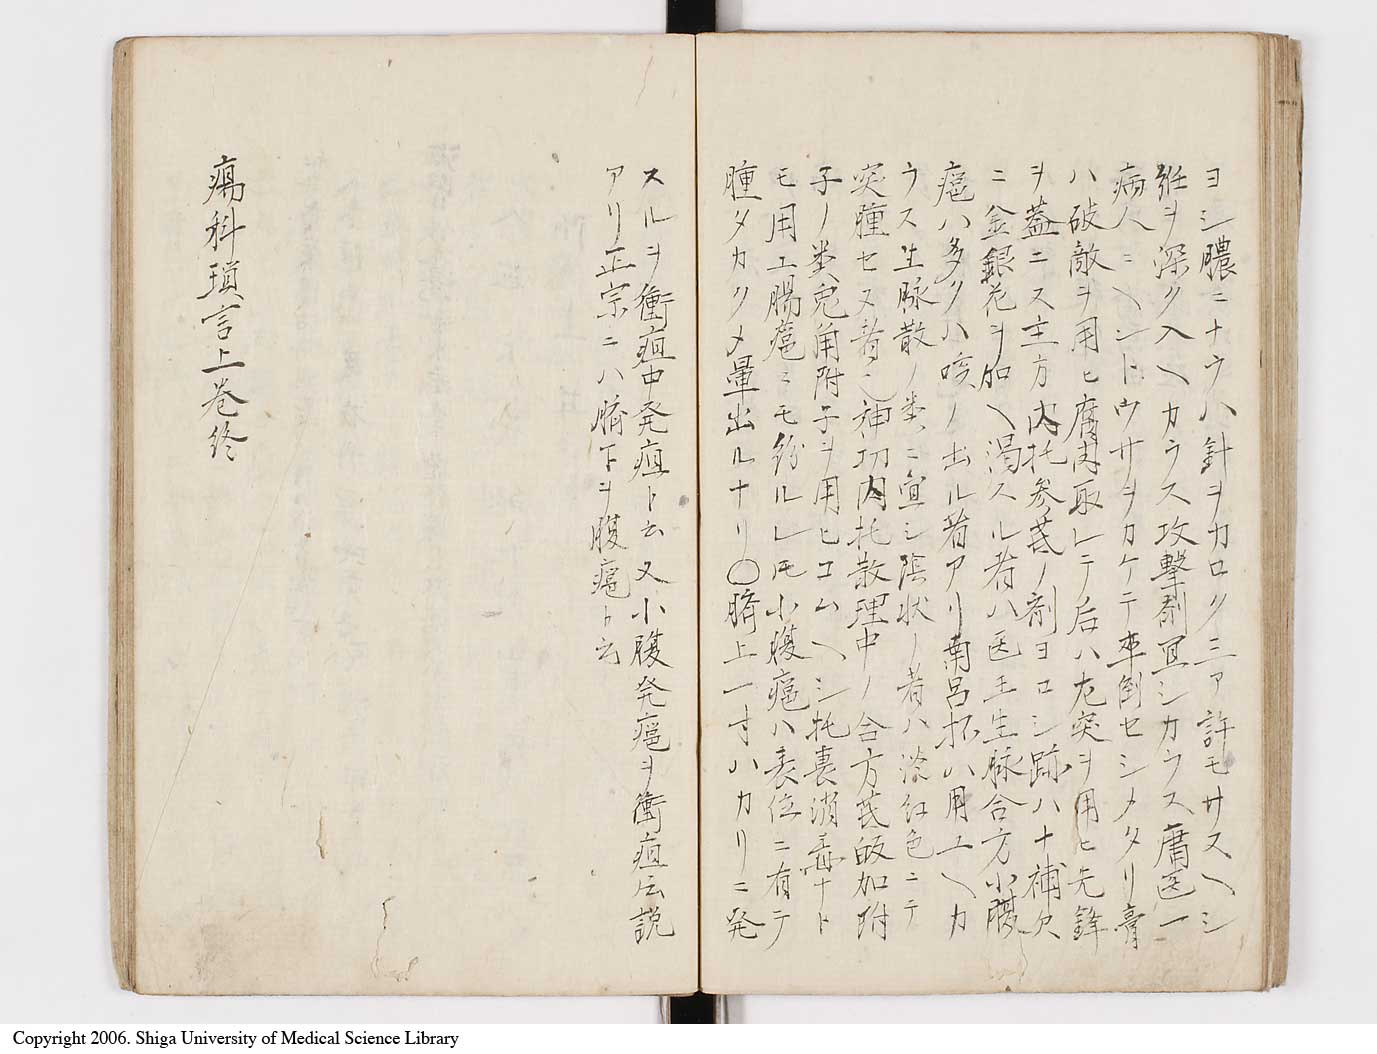 ヨシ膿ニナウハ針ヲカロク三ア許モサスヘシ
維ヲ深ク入ヘカラス攻撃剤宜シカラス庸医一
病人ニヘシトウサヲカケテ卒倒セシメタリ膏
ハ破敵ヲ用ヒ腐肉取レテ后ハ左突ヲ用ヒ先鋒
ヲ蓋ニス主方内托参芪ノ剤ヨロシ跡ハ十補欠
ニ金銀花ヲ加ヘ渇スル者ハ医王生脉合方小腹
癌ハ多クハ咳ノ出ル者アリ南呂拡ハ用ユヘカ
ラス生脉散ノ類ニ宜シ陰状ノ者ハ淡紅色ニテ
突腫セヌ者也神功内托散理中ノ合方芪皈加附
子ノ類兎角附子ヲ用ヒコムヘシ托裏消毒ナト
モ用エ腸癰ニモ紛ルレ𪜈小腹癰ハ表位ニ有テ
腫タカクメ暈出ルナリ〇臍上一寸ハカリニ発
スルヲ衝疽中発疽ト云又小腹発癰ヲ衝疽云説
アリ正宗ニハ臍下ヲ腹癰ト云
瘍科瑣言上巻終
Copyright 2006. Shiga University of Medical Science Library